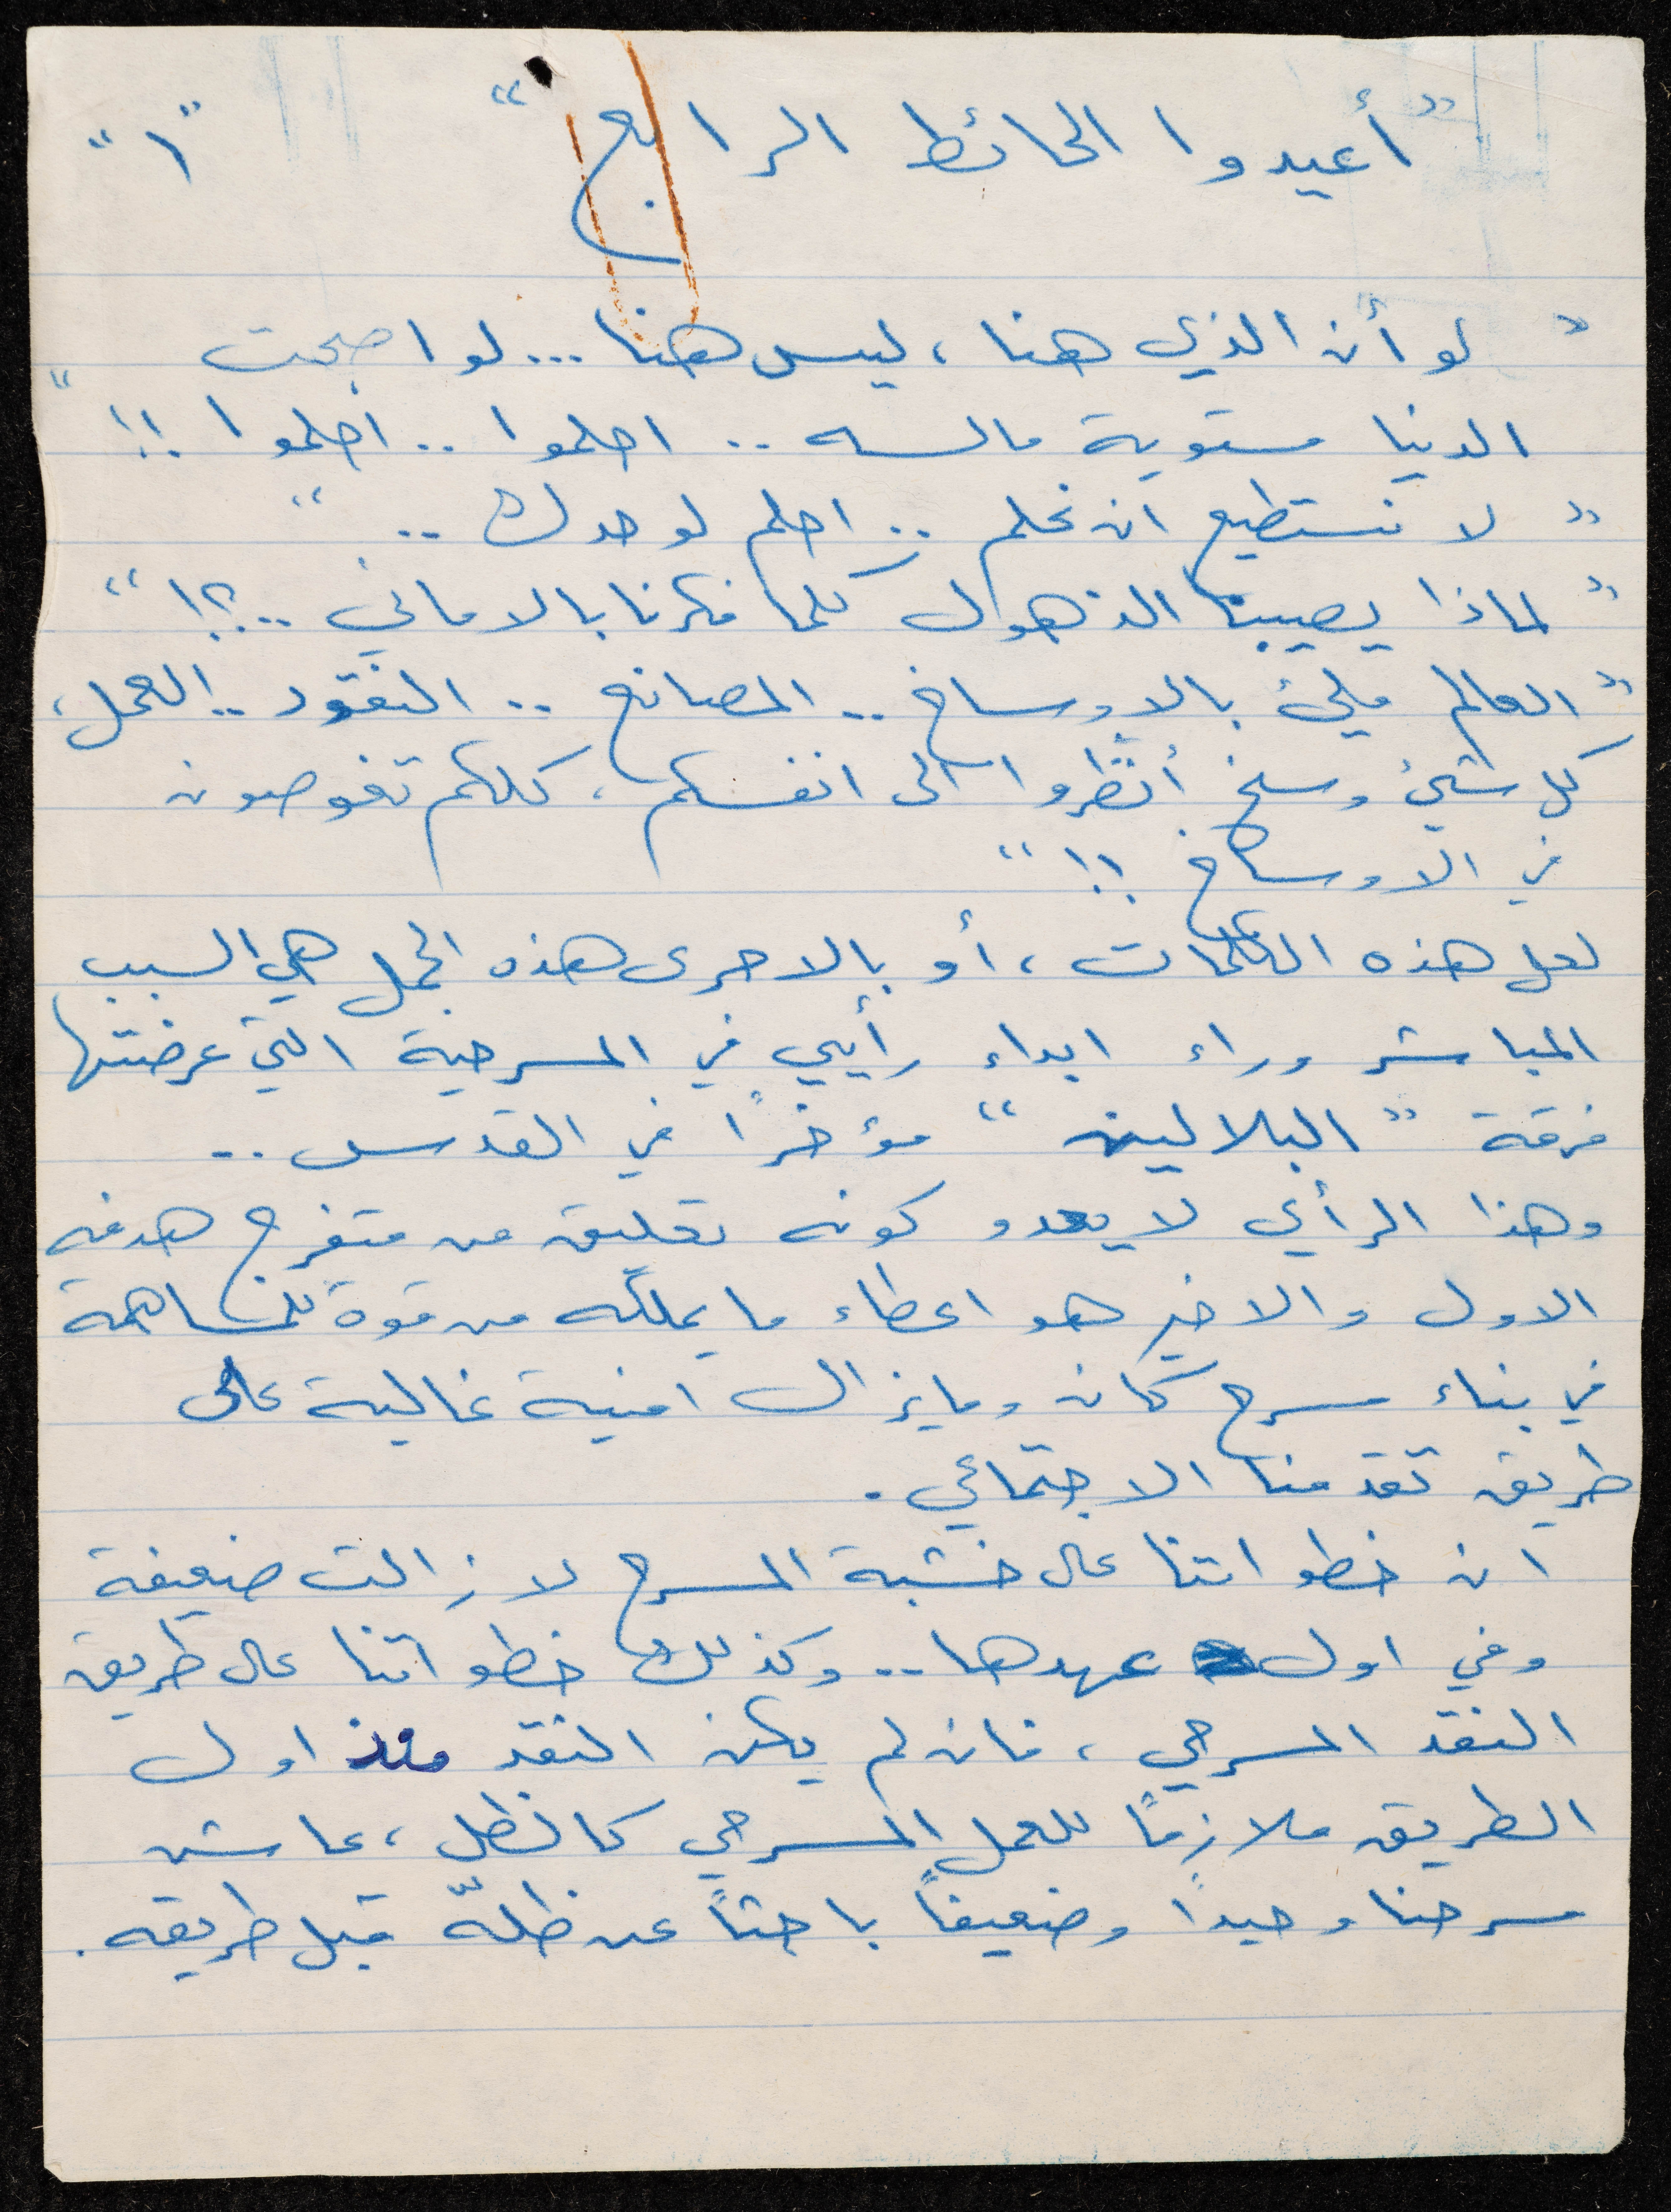 "أعيدوا الحائط الرابع" "١"
" لو أن الذي هنا ، ليس هنا ... لو اصبحت
الدنيا مستوية مالسه .. احلموا .. احلموا !! "
" لا نستطيع ان نحلم .. احلم لوحدك .. "
" لماذا يصيبنا الذهول كلما فكرنا بالاماني ..؟! "
" العالم مليئ بالاوساخ .. المصانع .. النقود .. العمل ،
كل شيئ وسخ أنظروا الى انفسكم ، كلكم تغوصون
في الاوساخ !! "
لعل هذه الكلمات ، أو بالاحرى هذه الجمل هي السبب
المباشر وراء ابداء رأيي في المسرحية التي عرضتها
فرقة " البلالين " مؤخرًا في القدس ..
وهذا الرأي لا يعدو كونه تعليق من متفرج هدفه
الاول والاخير هو اعطاء ما يملكه من قوة للمساهمة
في بناء مسرح كان وما يزال امنية غالية على
طريق تقدمنا الاجتماعي .
ان خطواتنا على خشبة المسرح لا زالت ضعيفة
وفي اول عهدها .. وكذلك خطواتنا على طريق
النقد المسرحي ، فان لم يكن النقد منذ اول
الطريق ملازمًا للعمل المسرحي كالظل ، عاش
مسرحنا وحيدًا وضعيفًا باحثًا عن ظلّه قبل طريقه .